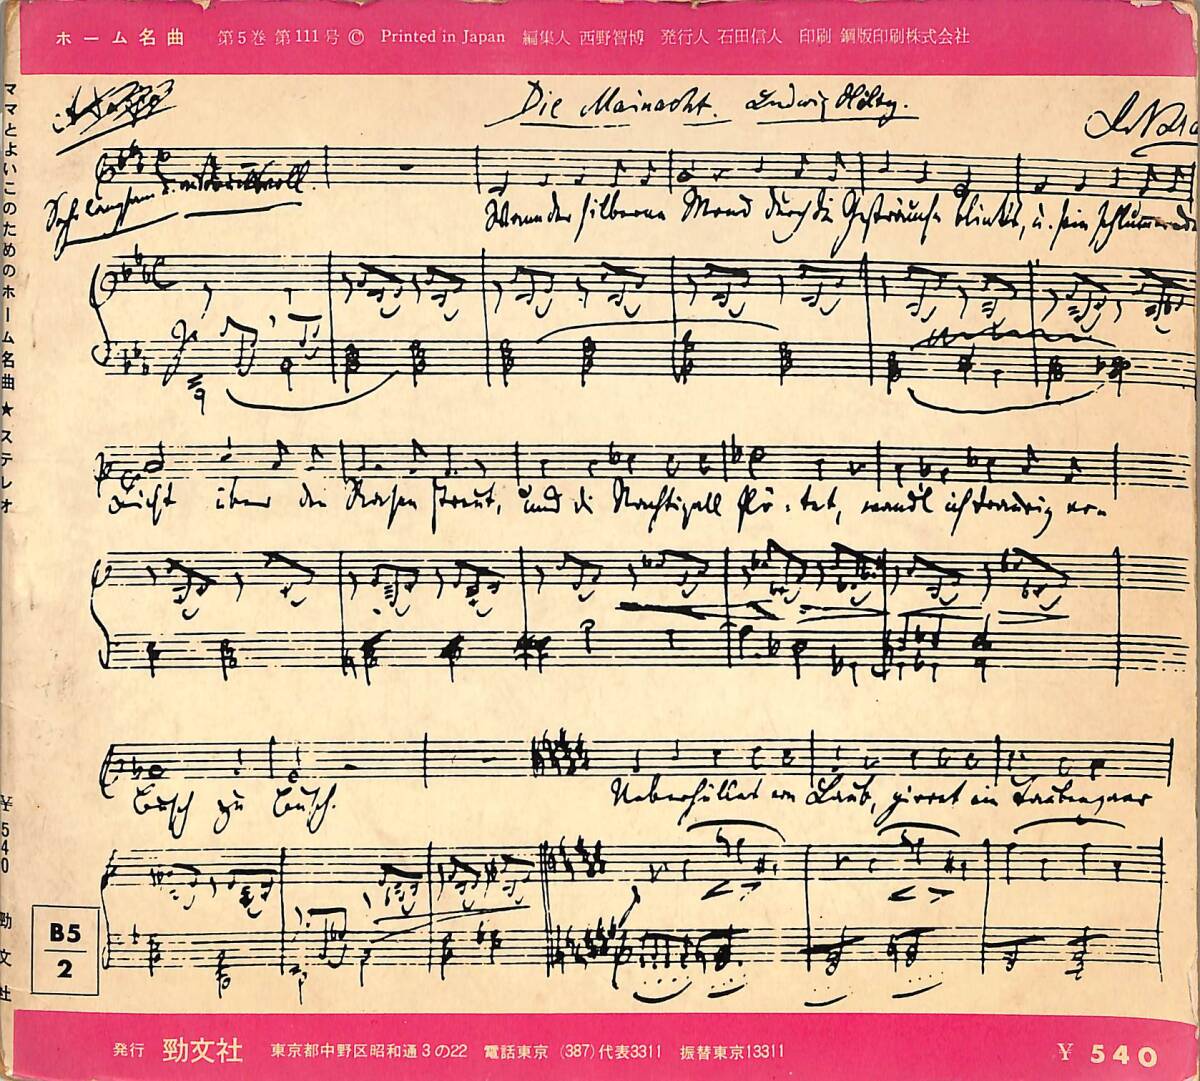 ホーム名曲 第5巻 第111号 © Printed in Japan 編集人 西野智博 発行人 石田信人 印刷 鋼版印刷株式会社
ママとよいこのためのホーム名曲★ステレオ ¥540 勁文社
Die Mainacht. Ludwig Hölty.
Sehr langsam u. ausdrucksvoll.
Wann der silberne Mond durch die Gesträuche blinkt, u. sein schlummerndes
Licht über den Rasen streut, und die Nachtigall flö-tet, wandl ich traurig von
Busch zu Busch. Ueberhüllet von Laub, girret ein Taubenpaar
B5
2
発行 勁文社 東京都中野区昭和通3の22 電話東京 (387)代表3311 振替東京13311 ¥ 540